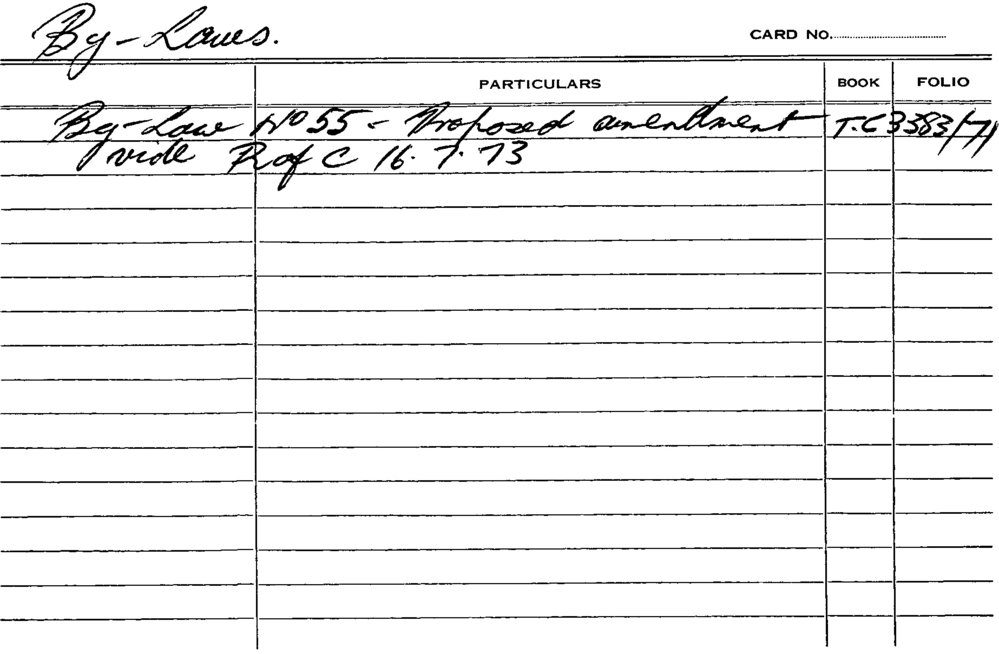 By-Laws.
CARD No.
PARTICULARS BOOK FOLIO
By-Law No 55 - Proposed amendment T.C 3383/71
vide R of C 16.7.73